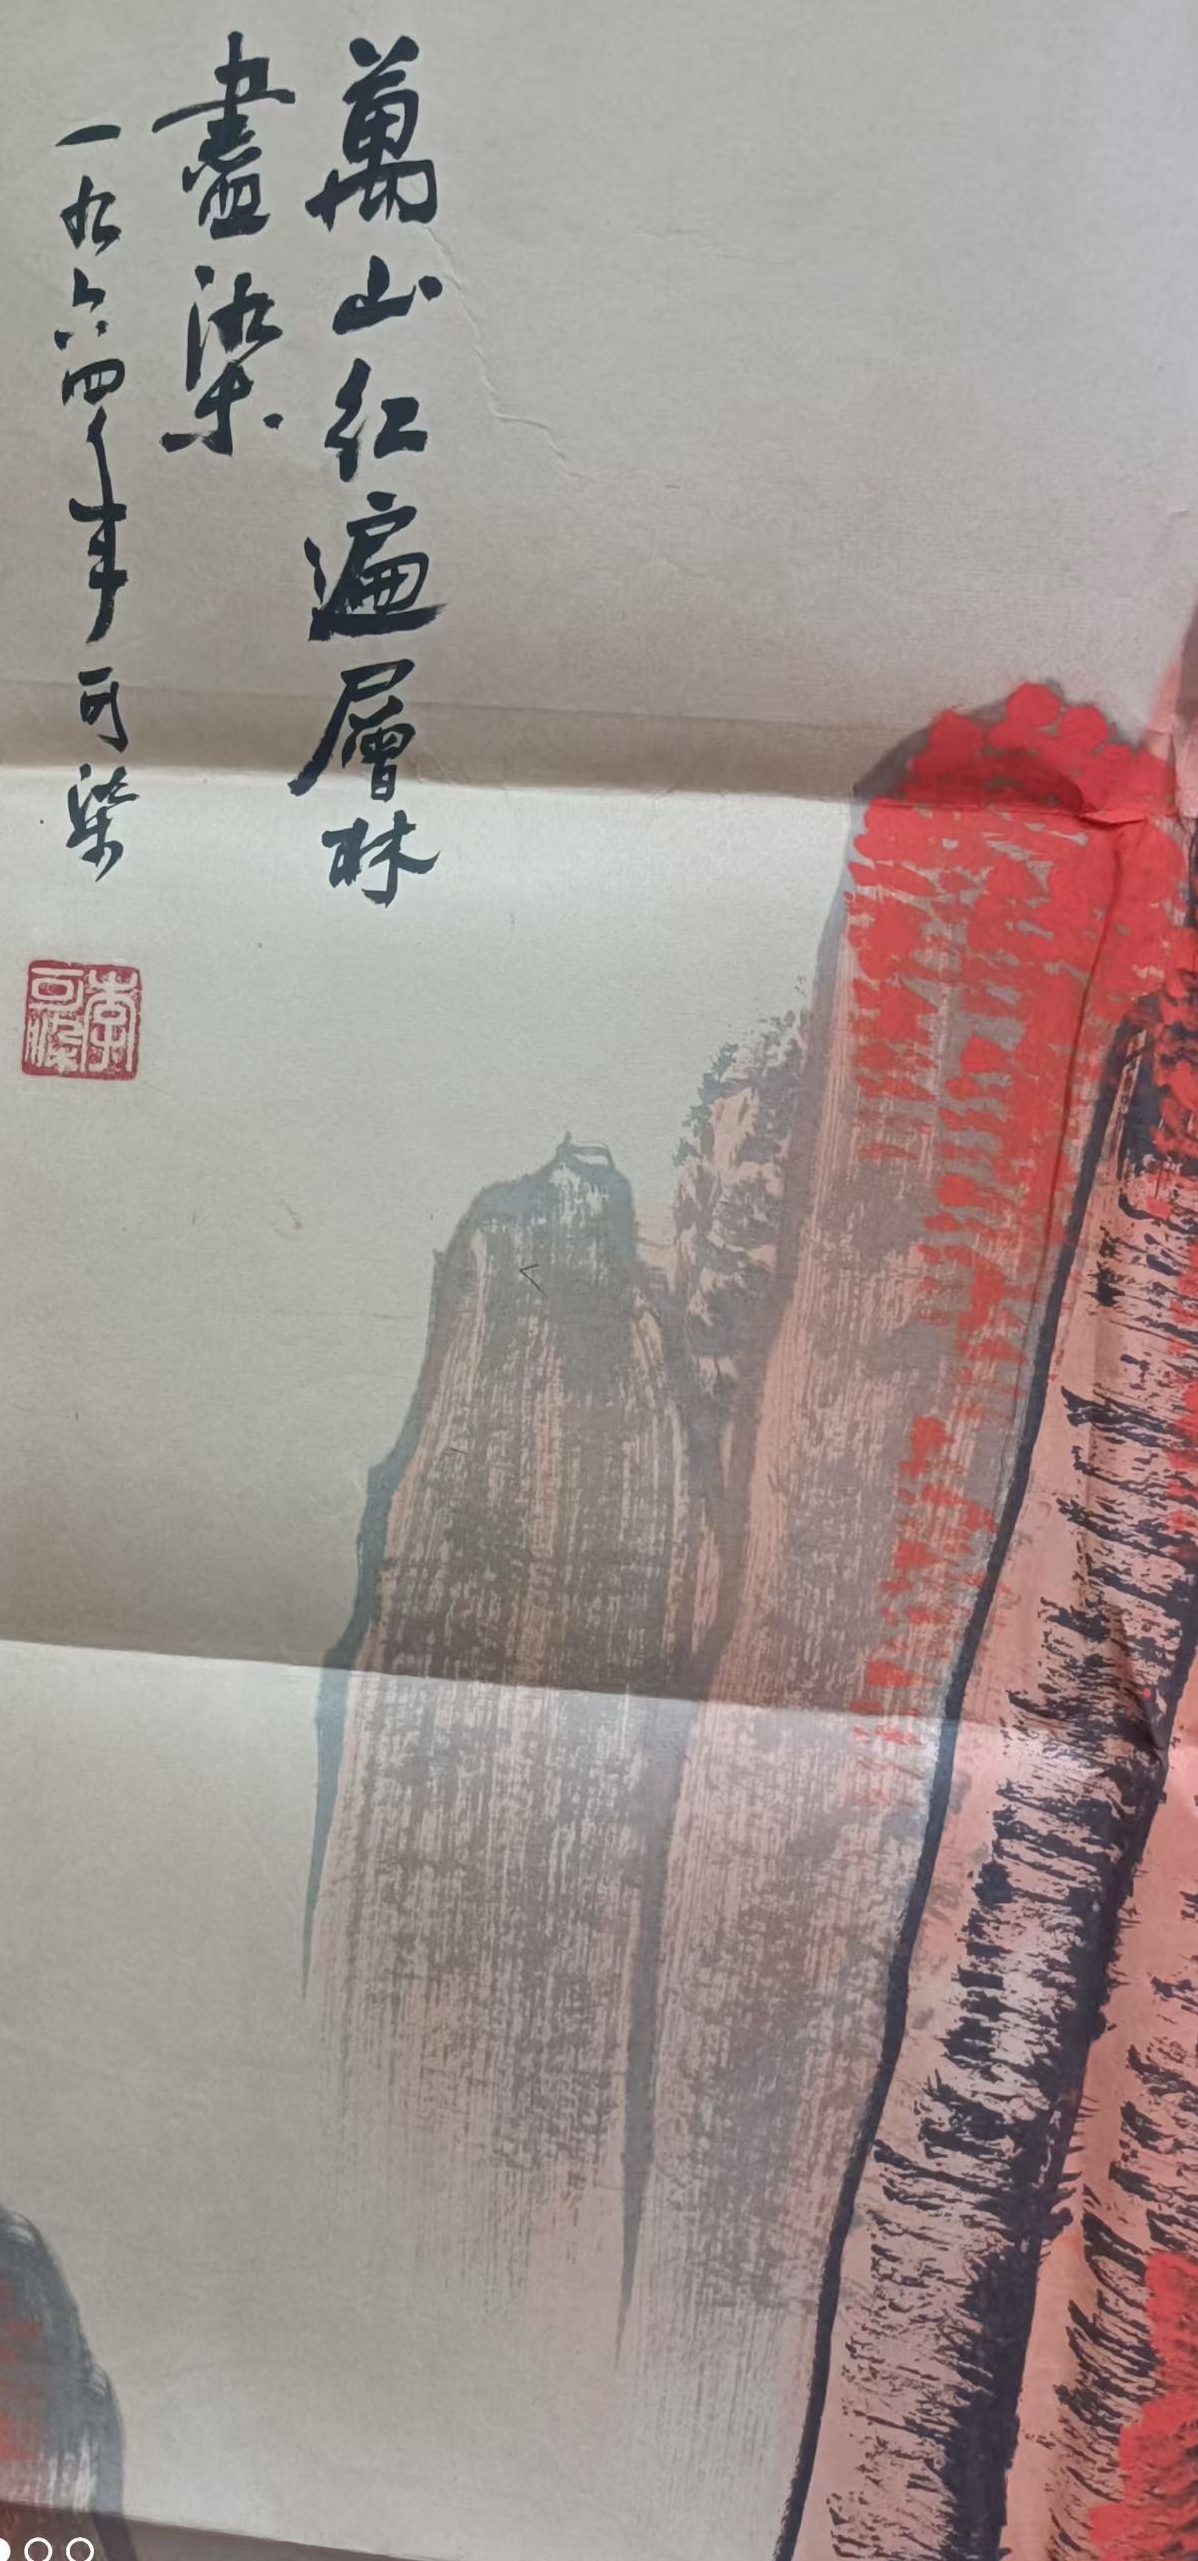 萬山红遍層林
盡染
一九六四年可染
李可染